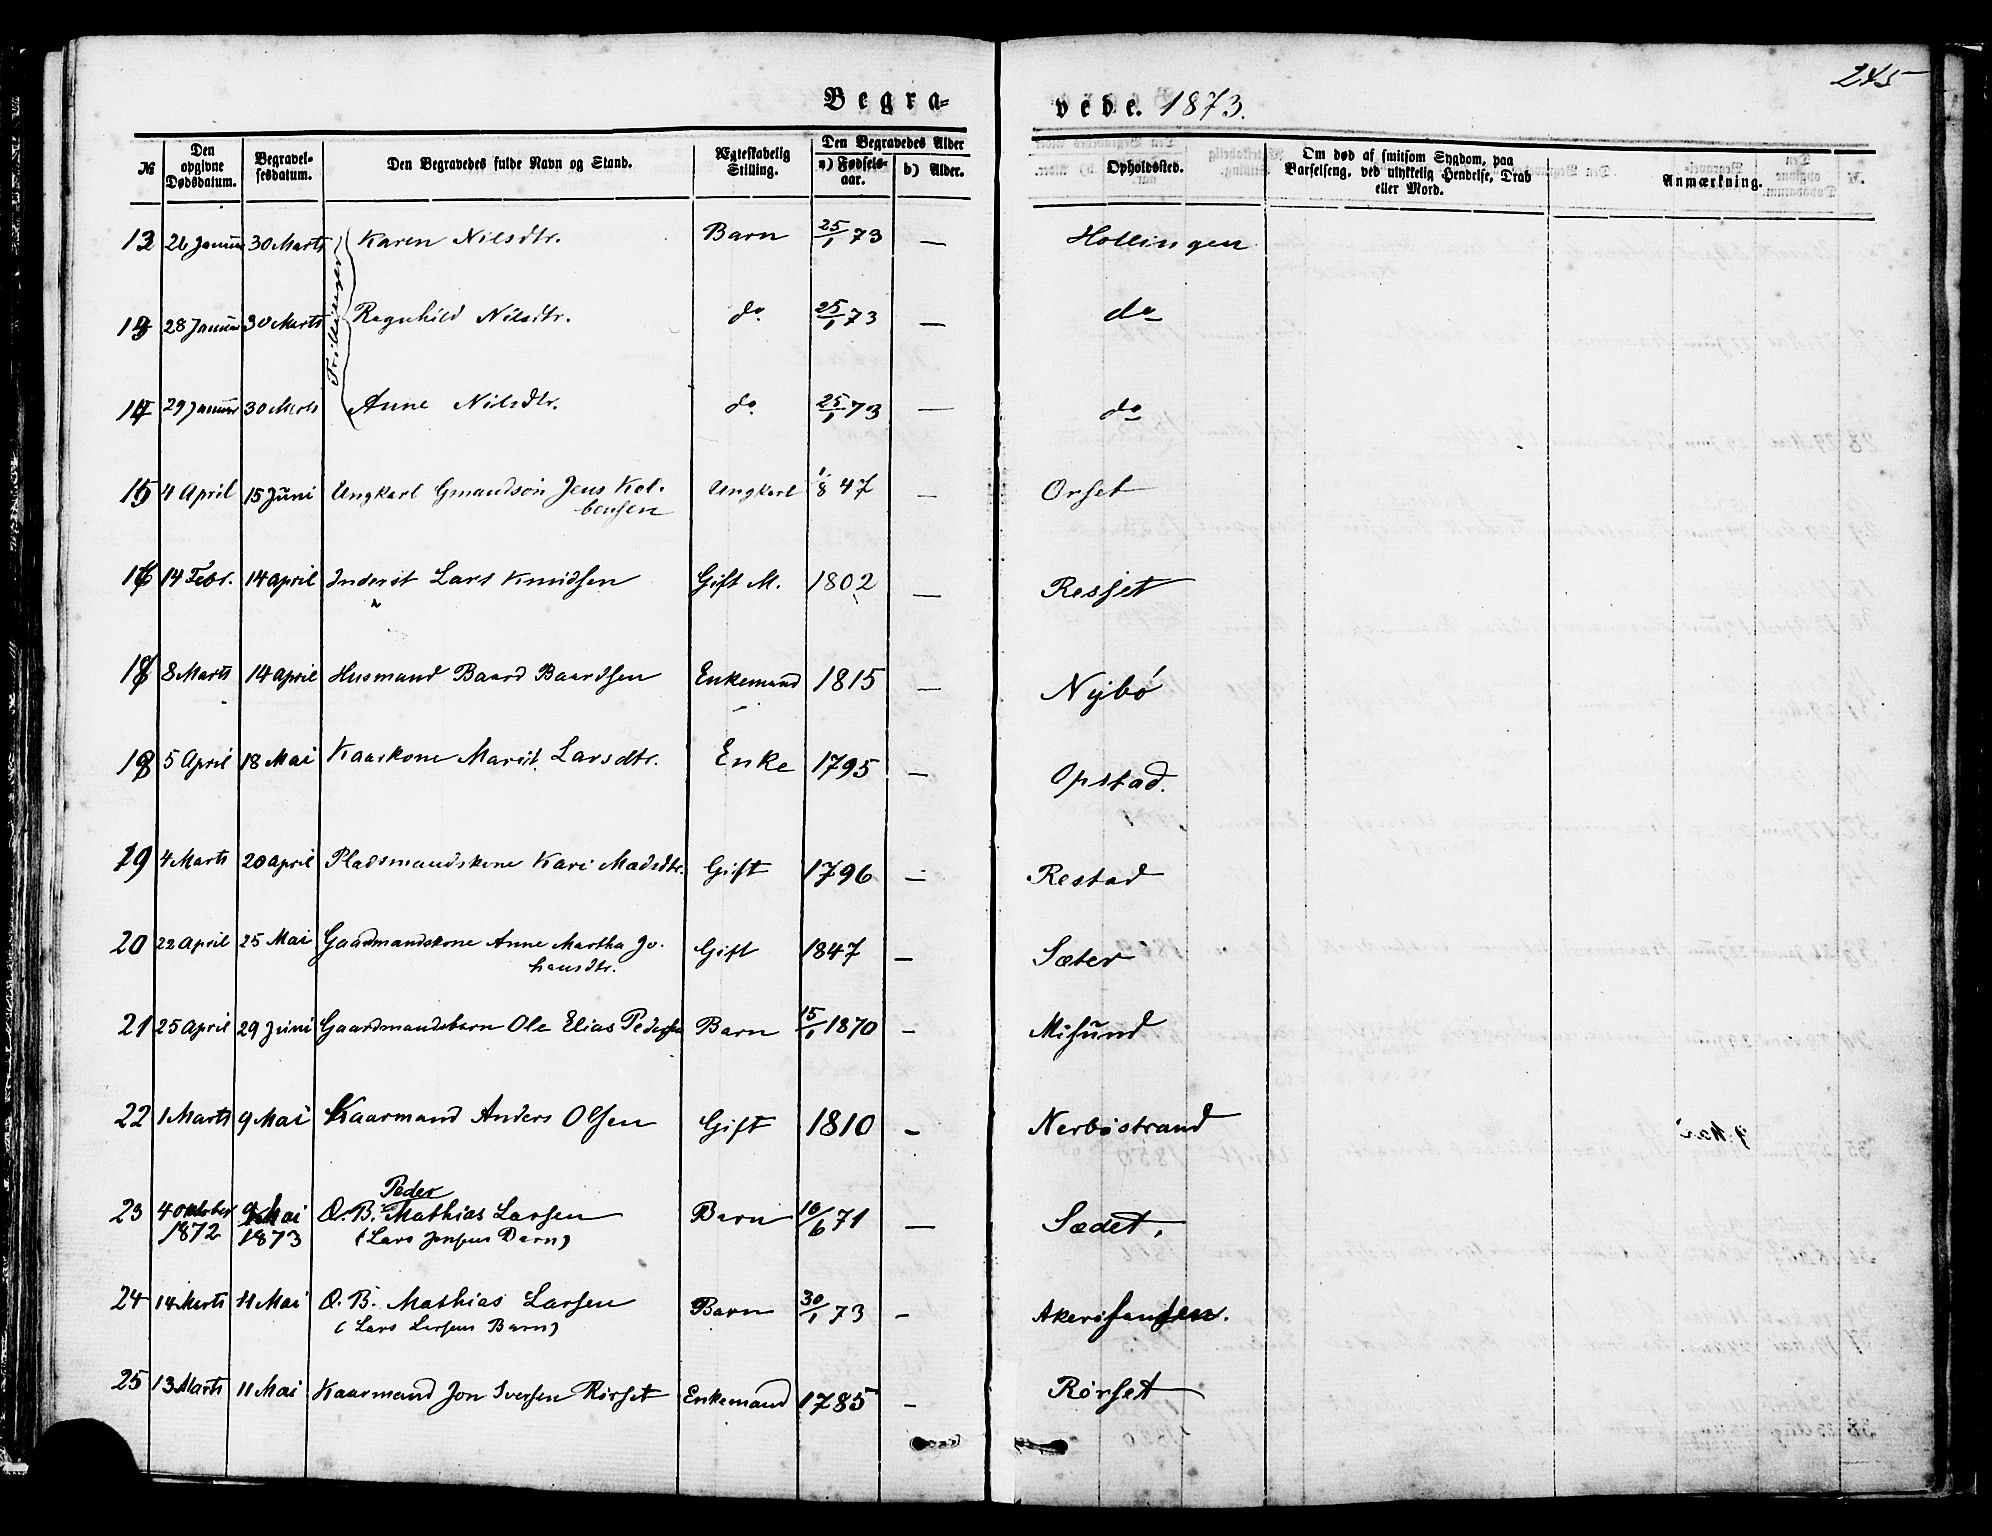 245
Begra-
vede. 1873.
№ Den opgivne Dødsdatum. Begravel-sesdatum. Den Begravedes fulde Navn og Stand. Ægteskabelig Stilling. Den Begravedes Alder a) Fødsels-aar. b) Alder. Opholdssted. Om død af smitsom Sygdom, paa Barselseng, ved ulykkelig Hendelse, Drab eller Mord. Anmærkning.
Trillinger
26 Januar 30 Marts Karen Nilsdtr. Barn 25/1 73 — Hollingen
28 Januar 30 Marts Ragnhild Nilsdtr. do 25/1 73 — do
29 Januar 30 Marts Anne Nilsdtr. do 25/1 73 — do
15 4 April 15 Juni Ungkarl Gmandsøn Jens Kol-
bensen Ungkarl 1/8 47 — Orset
16 14 Febr. 14 April Inderst Lars Knudsen Gift M. 1802 — Resset
8 Marts 14 April Husmand Baard Baardsen Enkemand 1815 — Nybö
18 5 April 18 Mai Kaarkone Marit Larsdtr. Enke 1795 — Opstad.
19 4 Marts 20 April Pladsmandskone Kari Madsdtr. Gift 1796 — Restad
20 22 April 25 Mai Gaardmandskone Anne Martha Jo-
hansdtr. Gift 1847 — Sæter
21 25 April 29 Juni Gaardmandsbarn Ole Elias Pedersen Barn 15/1 1870 — Misund
22 1 Marts 9 Mai Kaarmand Anders Olsen Gift 1810 — Nerböstrand
Peder
23 4 Oktober 9 Mai O. B. Mathias Larsen Barn 10/6 71 — Sædet.
1872 1873 (Lars Jensens Barn)
24 14 Marts 11 Mai O. B. Mathias Larsen Barn 30/1 73 — Akerösanden.
(Lars Larsens Barn)
25 13 Marts 11 Mai Kaarmand Jon Iversen Rörset Enkemand 1785 — Rörset